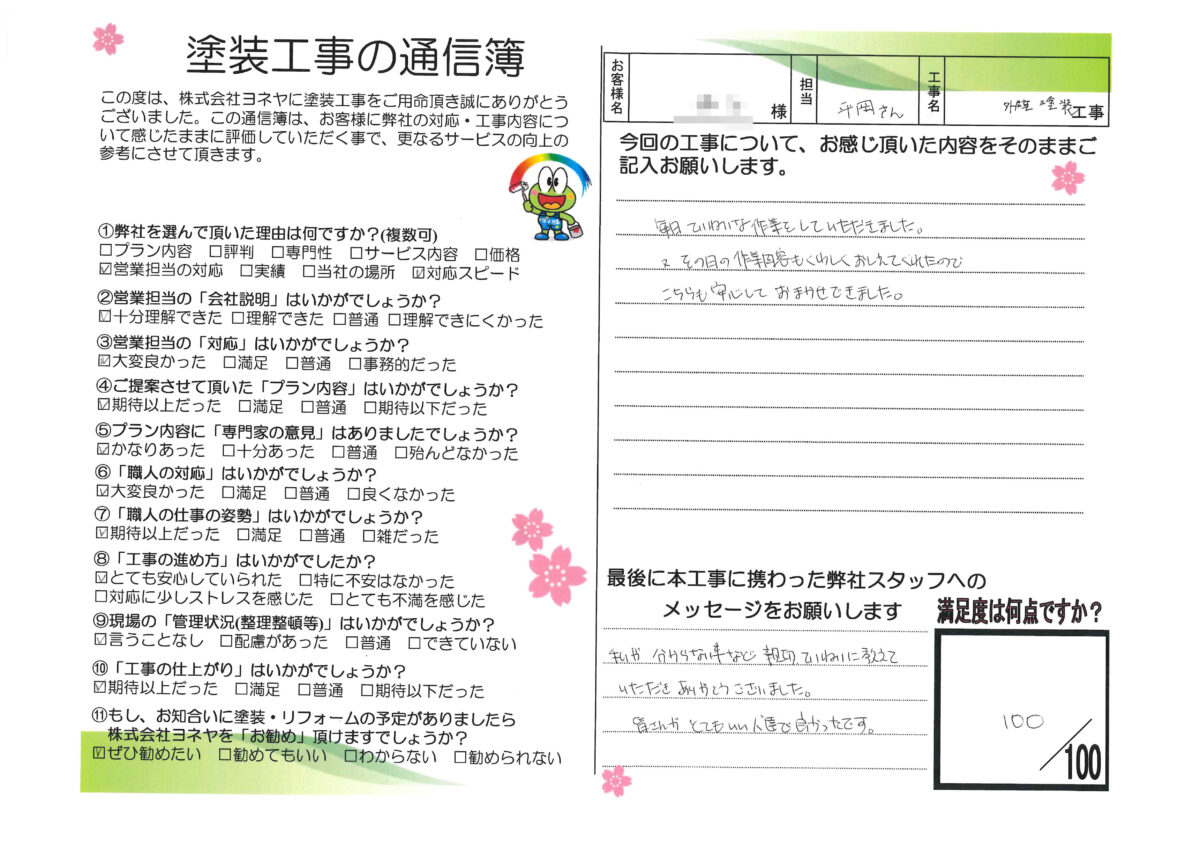 塗装工事の通信簿
この度は、株式会社ヨネヤに塗装工事をご用命頂き誠にありがとう
ございました。この通信簿は、お客様に弊社の対応・工事内容につ
いて感じたままに評価していただく事で、更なるサービスの向上の
参考にさせて頂きます。
①弊社を選んで頂いた理由は何ですか?(複数可)
□プラン内容 □評判 □専門性 □サービス内容 □価格
☑営業担当の対応 □実績 □当社の場所 ☑対応スピード
②営業担当の「会社説明」はいかがでしょうか?
☑十分理解できた □理解できた □普通 □理解できにくかった
③営業担当の「対応」はいかがでしょうか?
☑大変良かった □満足 □普通 □事務的だった
④ご提案させて頂いた「プラン内容」はいかがでしょうか?
☑期待以上だった □満足 □普通 □期待以下だった
⑤プラン内容に「専門家の意見」はありましたでしょうか?
☑かなりあった □十分あった □普通 □殆んどなかった
⑥「職人の対応」はいかがでしょうか?
☑大変良かった □満足 □普通 □良くなかった
⑦「職人の仕事の姿勢」はいかがでしょうか?
☑期待以上だった □満足 □普通 □雑だった
⑧「工事の進め方」はいかがでしたか?
☑とても安心していられた □特に不安はなかった
□対応に少しストレスを感じた □とても不満を感じた
⑨現場の「管理状況(整理整頓等)」はいかがでしょうか?
☑言うことなし □配慮があった □普通 □できていない
⑩「工事の仕上がり」はいかがでしょうか?
☑期待以上だった □満足 □普通 □期待以下だった
⑪もし、お知合いに塗装・リフォームの予定がありましたら
株式会社ヨネヤを「お勧め」頂けますでしょうか?
☑ぜひ勧めたい □勧めてもいい □わからない □勧められない
お客様名 様 担当 平岡さん 工事名 外壁塗装工事
今回の工事について、お感じ頂いた内容をそのままご
記入お願いします。
毎日ていねいな作業をしていただきました。
又 その日の作業内容もくわしくおしえてくれたので
こちらも安心して おまかせできました。
最後に本工事に携わった弊社スタッフへの
メッセージをお願いします
私が 分からない事など 親切ていねいに教えて
いただき ありがとうございました。
皆さんが とてもいい人達で良かったです。
満足度は何点ですか?
100/100